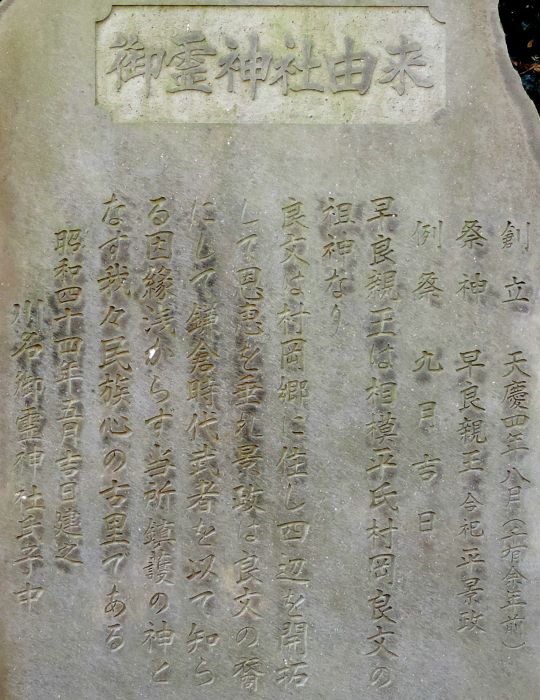 御霊神社由来
創立 天慶四年八月(千有余年前)
祭神 早良親王 合祀平景政
例祭 九月吉日
早良親王は相模平氏村岡良文の
祖神なり
良文は村岡郷に住し四辺を開拓
して恩恵を垂れ景政は良文の裔
にして鎌倉時代武者を以て知ら
る因縁浅からす当所鎮護の神と
なす我々民族心の古里である
昭和四十四年五月吉日建之
川名御霊神社氏子中